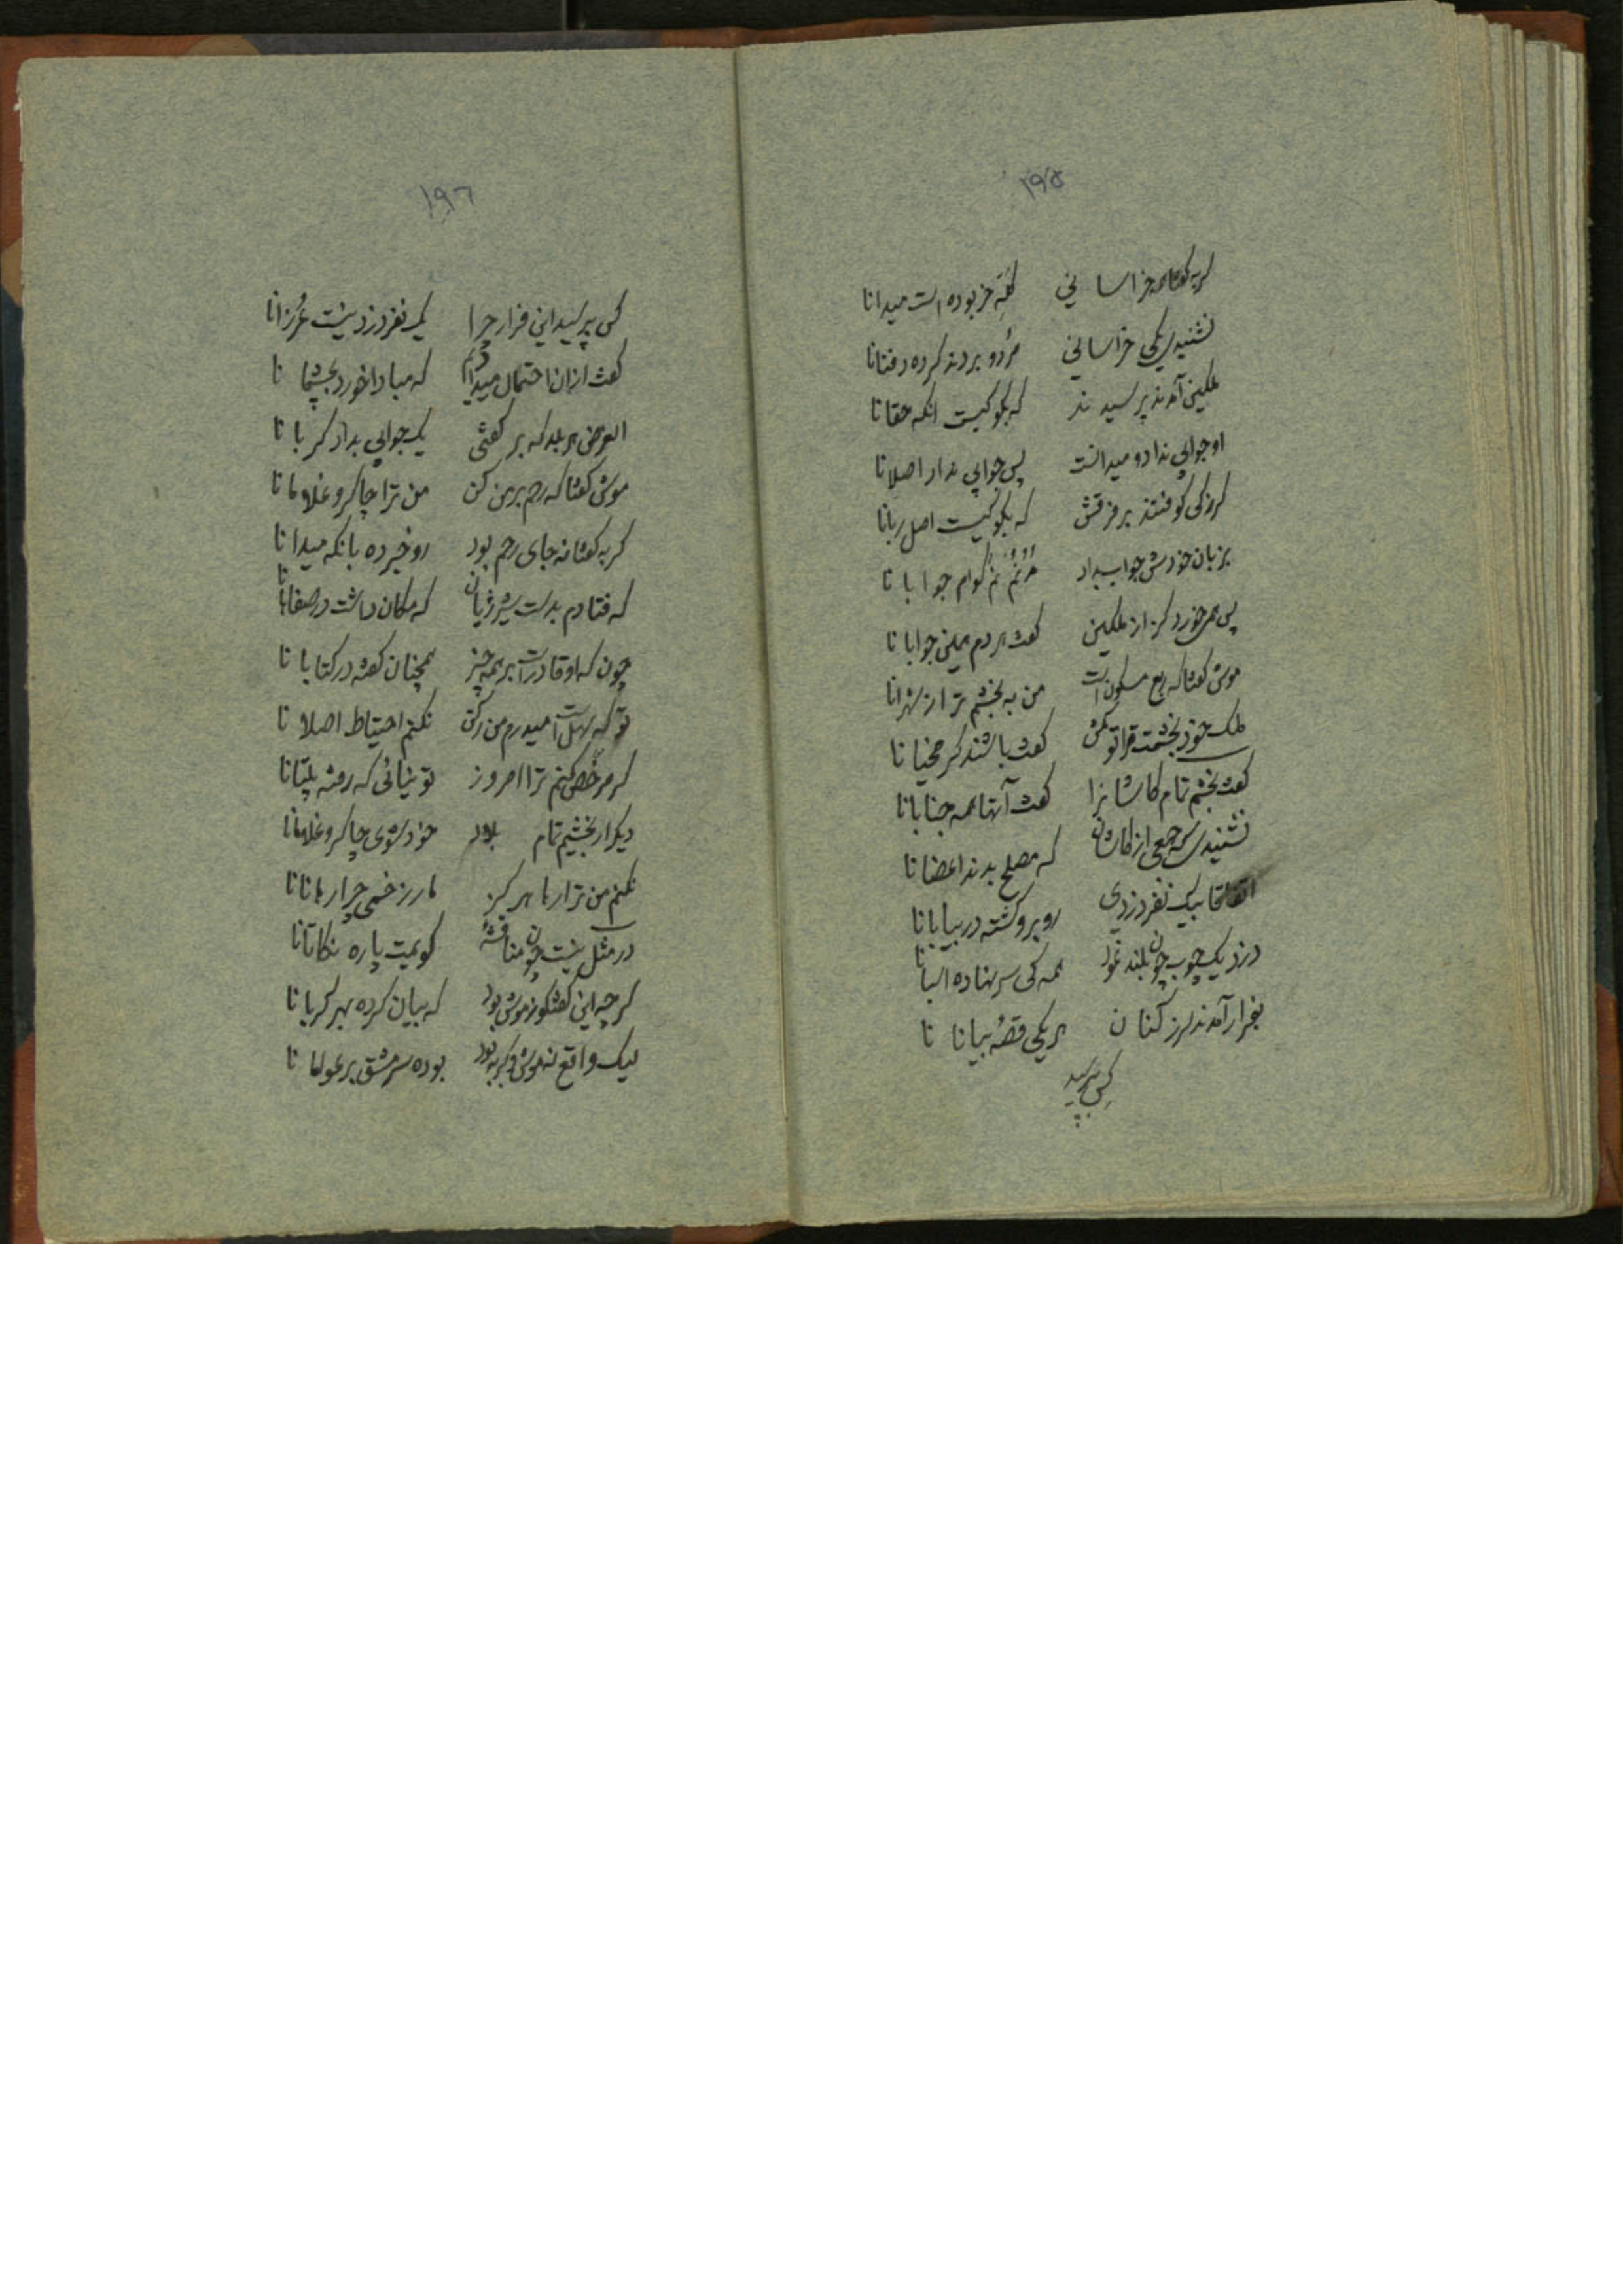 ١٩٥
گربه گفتا همه خراسانی کله خر بوده است میدانا
نشنیدی یکی خراسانی مردو بردند کرده دفنانا
ملکین آمدند پرسیدند که بگو کیست آنکه حقانا
او جوابی نداد و میدانست پس جوابی نداد اصلانا
گرزکی کوفتند بر فرقش که بگو کیست اصل ربانا
بزبان خودش جواب بداد جوابا نا
پس همی خورد گرز از ملکین گفت هر دم همین جوابا نا
موش گفتا که ربع مسکون است من به بخشم ترا ز شهرانا
ملک خود بخشمت قراتو مکن گفت باشند کر مخیانا
گفت بخشم تمام کاشانرا گفت آنها همه جنابانا
نشنیدی که جمعی از کاشان که مصلح بدند اعضانا
اتفاقا بیک نفر دزدی روبرو گشته در بیابانا
دزد یک چوب چون بلند نمود همه کی سر نهاده اسبانا
بفرار آمدند لرز کنان هر یکی قصه بیانا نا
کس بپرسید
١٩٦
کس بپرسید این فرار چرا یک نفر دزد نیست غرزانا
گفت ازان احتمال میدادم که مبادا خورد بچشما نا
الغرض هر بلد که بر گفتی یک جوابی بداد گربا نا
موش گفتا که رحم بر من کن من ترا چاکر و غلاما نا
گربه گفتا نه جای رحم بود رو خبر ده بانکه میدانا
که فتادم بدست شیر ژیان که مکان داشت در صفاهانا
چون که او قادر است بر همه چیز همچنان گفته در کتابا نا
نکنم احتیاط اصلا نا
گر مرخص کنم ترا امروز تو نیائی که رفته پلتانا
دیگر ار بخشیم تمام بلاد خود شوی چاکر و غلامانا
نکنم من ترا رها هرگز مار زخمی چرا رهانانا
در مثل نیست چون مناقشهٔ گویمت پاره نکاتانا
گرچه این گفتگو ز موش بود که بیان کرده بهر گربانا
لیک واقع نه موش و گربه بود بوده سرمشق بر عولما نا